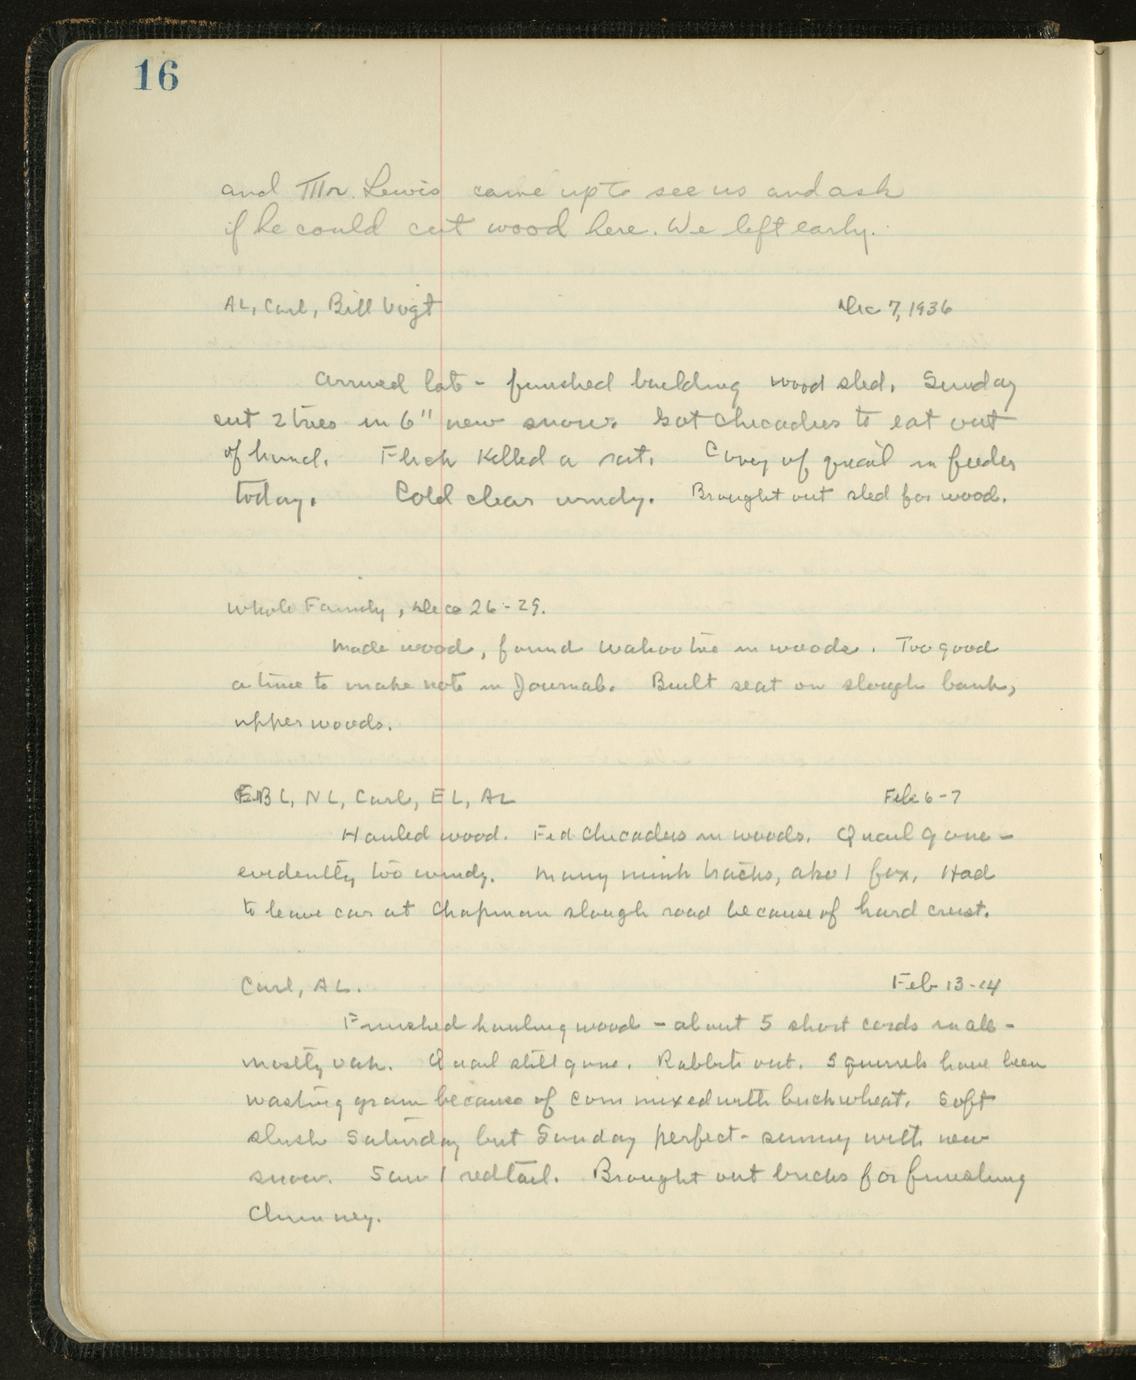 16
and Mr. Lewis came up to see us and ask
if he could cut wood here. We left early.
AL, Carl, Bill Vogt Dec 7, 1936
Arrived late - finished building wood sled. Sunday
cut 2 trees in 6" new snow. Got chicadees to eat out
of hand. Flick killed a rat. Covey of quail in feeder
today. Cold clear windy. Brought out sled for wood.
Whole Family, Dec 26-29.
Made wood, found wahoo tree in woods. Too good
a time to make note in Journal. Built seat on slough bank,
upper woods.
EBL, NL, Carl, EL, AL Feb 6-7
Hauled wood. Fed chicadees in woods. Quail gone -
evidently too windy. Many mink tracks, also 1 fox. Had
to leave car at Chapman slough road because of hard crust.
Carl, AL. Feb 13-14
Finished hauling wood - about 5 short cords in all -
mostly oak. Quail still gone. Rabbits out. Squirrels have been
wasting grain because of corn mixed with buckwheat. Soft
slush Saturday but Sunday perfect - sunny with new
snow. Saw 1 redtail. Brought out bricks for finishing
chimney.